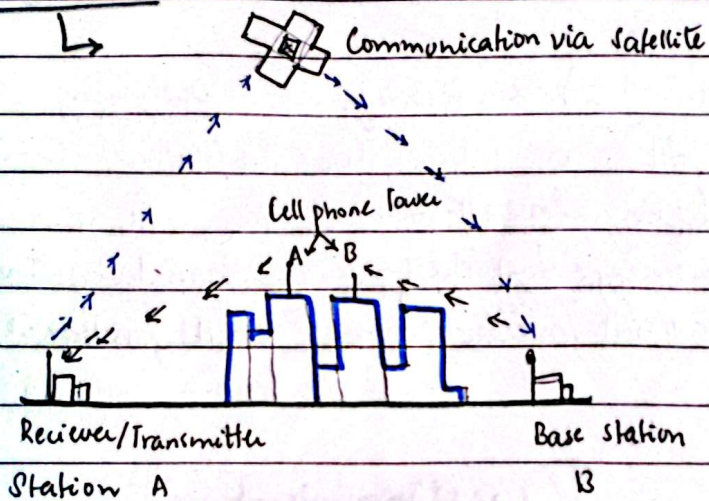 Communication via Satellite
Cell phone Tower
A B
Reciever/Transmitter
Base Station
Station A
B